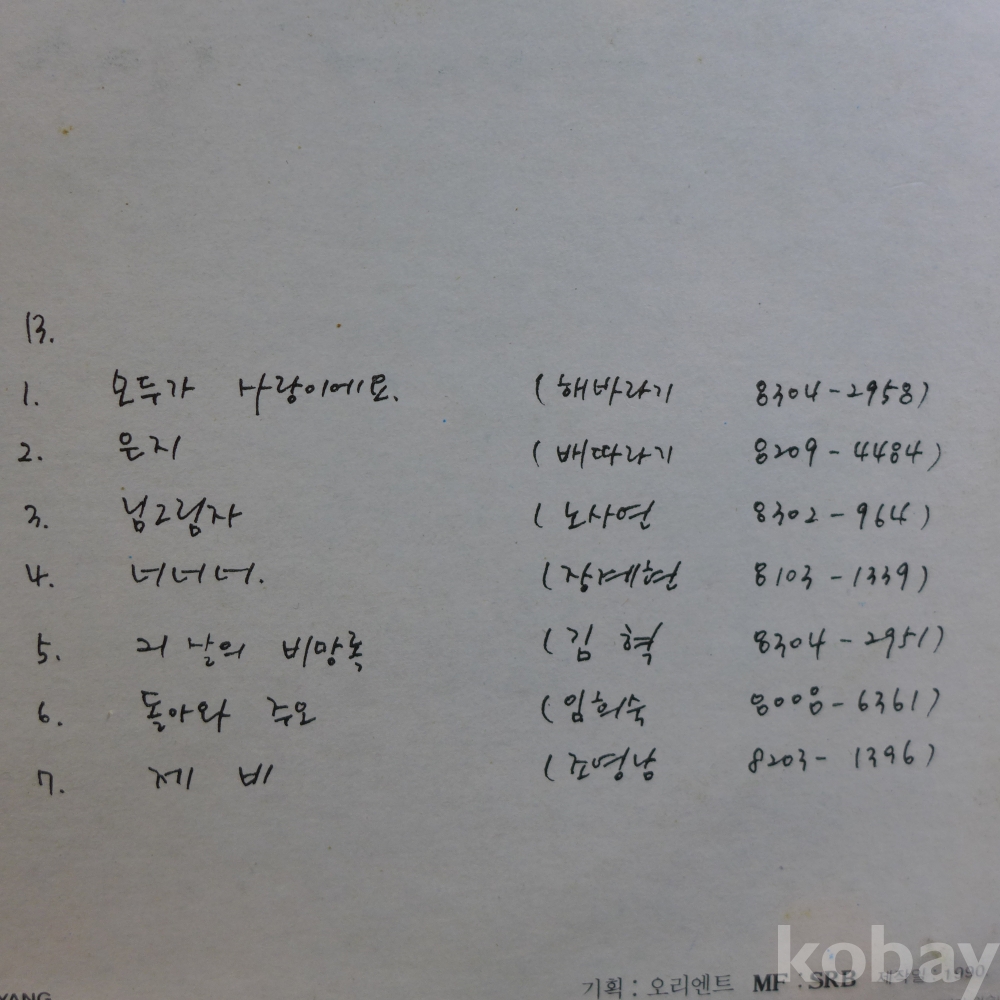 13.
1. 모두가 사랑이에요. (해바라기 8304-2958)
2. 은지 (배따라기 8209-4484)
3. 님그림자 (노사연 8302-964)
4. 너너너. (장계현 8103-1339)
5. 그 날의 비망록 (김 혁 8304-2951)
6. 돌아와 주오 (임희숙 8008-6361)
7. 제 비 (조영남 8203-1396)
kobay
YANG 기획 : 오리엔트 MF : SRB 제작일 : 1990.